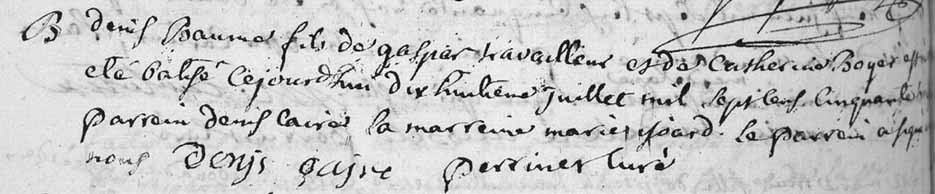 B denis Baume fils de gaspar travailleur et de Catherine Boyer
été batisé cejourdhui dix huitieme juillet mil sept cens cinquante
parrein denis laire la marreine marie isoard le parrein a signe
nous Denis perrinet curé